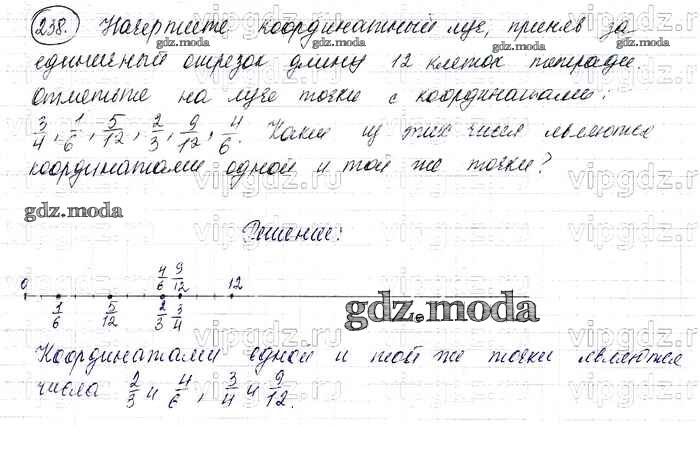 238. Начертите координатный луч, приняв за
gdz.moda gdz.moda gdz.moda gdz.moda
единичный отрезок длину 12 клеток тетради.
Отметьте на луче точки с координатами:
3/4, 1/6, 5/12, 2/3, 9/12, 4/6. Какие из этих чисел являются
координатами одной и той же точки?
vipgdz.ru vipgdz.ru vipgdz.ru
gdz.moda
Решение:
4/6 9/12
0 12
1/6 5/12 2/3 3/4
gdz.moda
Координатами одной и той же точки являются
числа 2/3 и 4/6, 3/4 и 9/12.